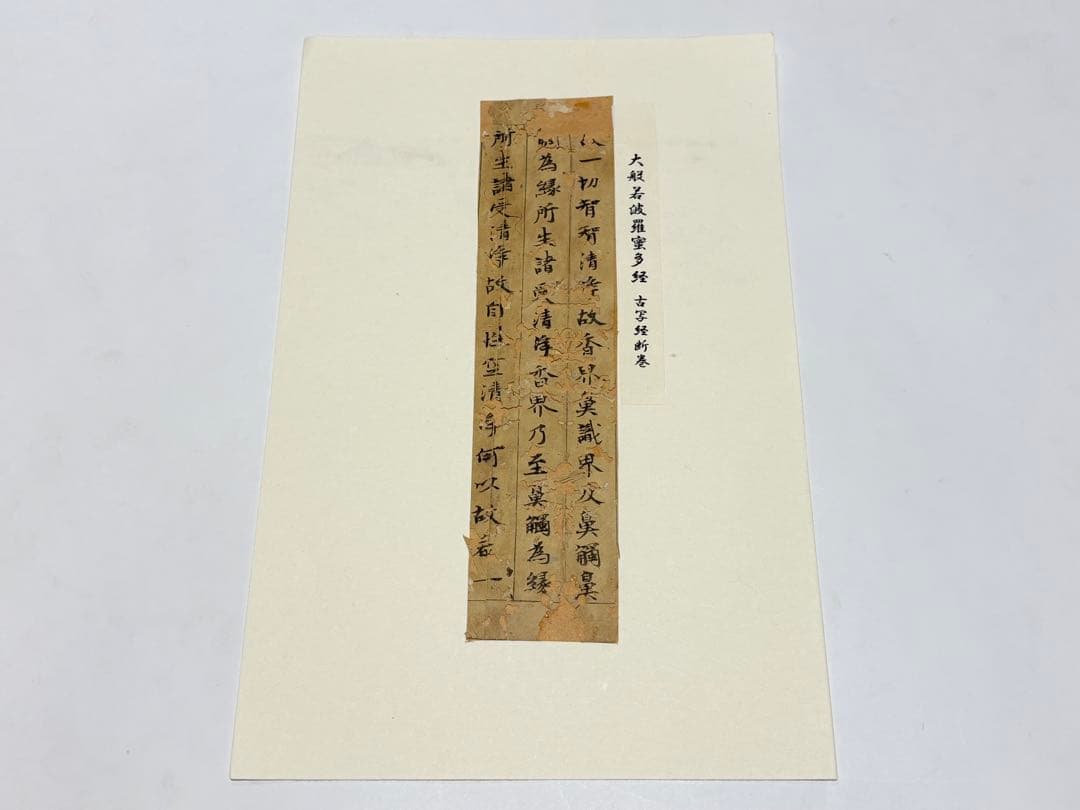 大般若波羅蜜多経 古写経断巻
一切智智清淨故香界鼻識界及鼻觸鼻
為緣所生諸受清淨香界乃至鼻觸為緣
所生諸受清淨故自性空清淨何以故若一